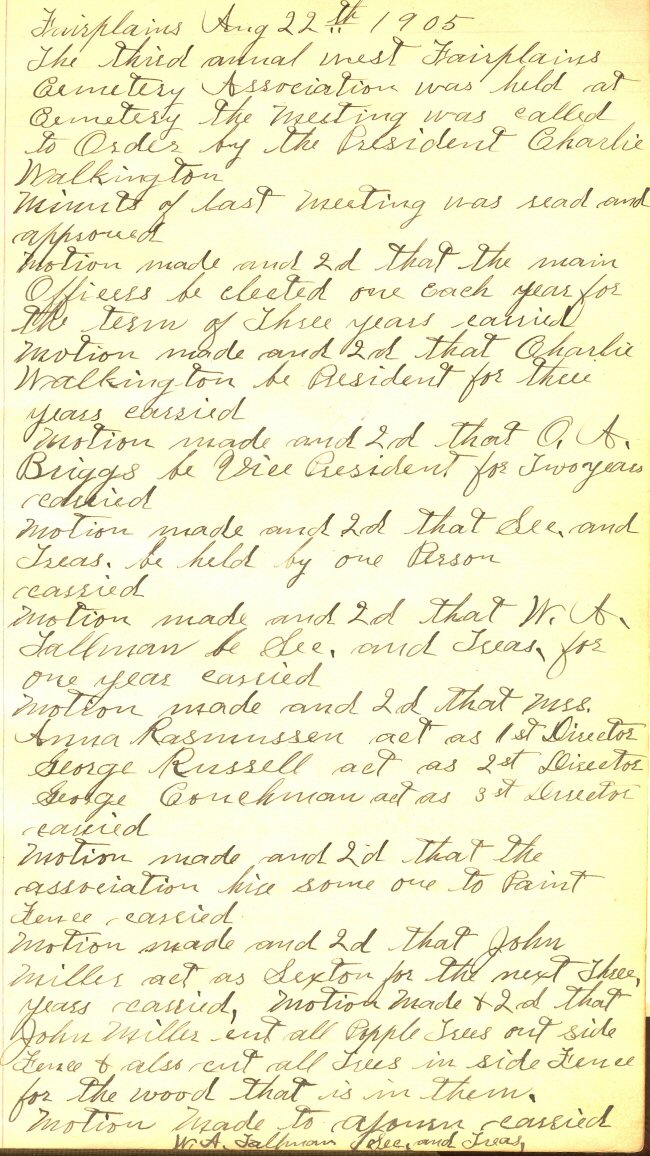 Fairplains Aug 22th 1905
The third annal meet Fairplains
Cemetery Association was held at
Cemetery the Meeting was called
to Order by the President Charlie
Walkington
Minuts of last Meeting was read and
approved
Motion made and 2d that the main
Officers be elected one each year for
the term of Three years carried
Motion made and 2d that Charlie
Walkington be President for three
years carried
Motion made and 2d that O. A.
Briggs be Vice President for Two years
carried
Motion made and 2d that Sec. and
Treas. be held by one Person
carried
Motion made and 2d that W. A.
Tallman be Sec. and Treas. for
one year carried
Motion made and 2d that Mrs.
Anna Rasmussen act as 1st Director
George Russell act as 2st Director
George Couchman act as 3st Director
carried
Motion made and 2d that the
association hire some one to Paint
Fence carried
Motion made and 2d that John
Miller act as Sexton for the next Three,
years carried, Motion Made & 2d that
John Miller cut all Popple Trees out side
Fence & also cut all Trees in side Fence
for the wood that is in them.
Motion Made to ajourn carried
W. A. Tallman Sec. and Treas,